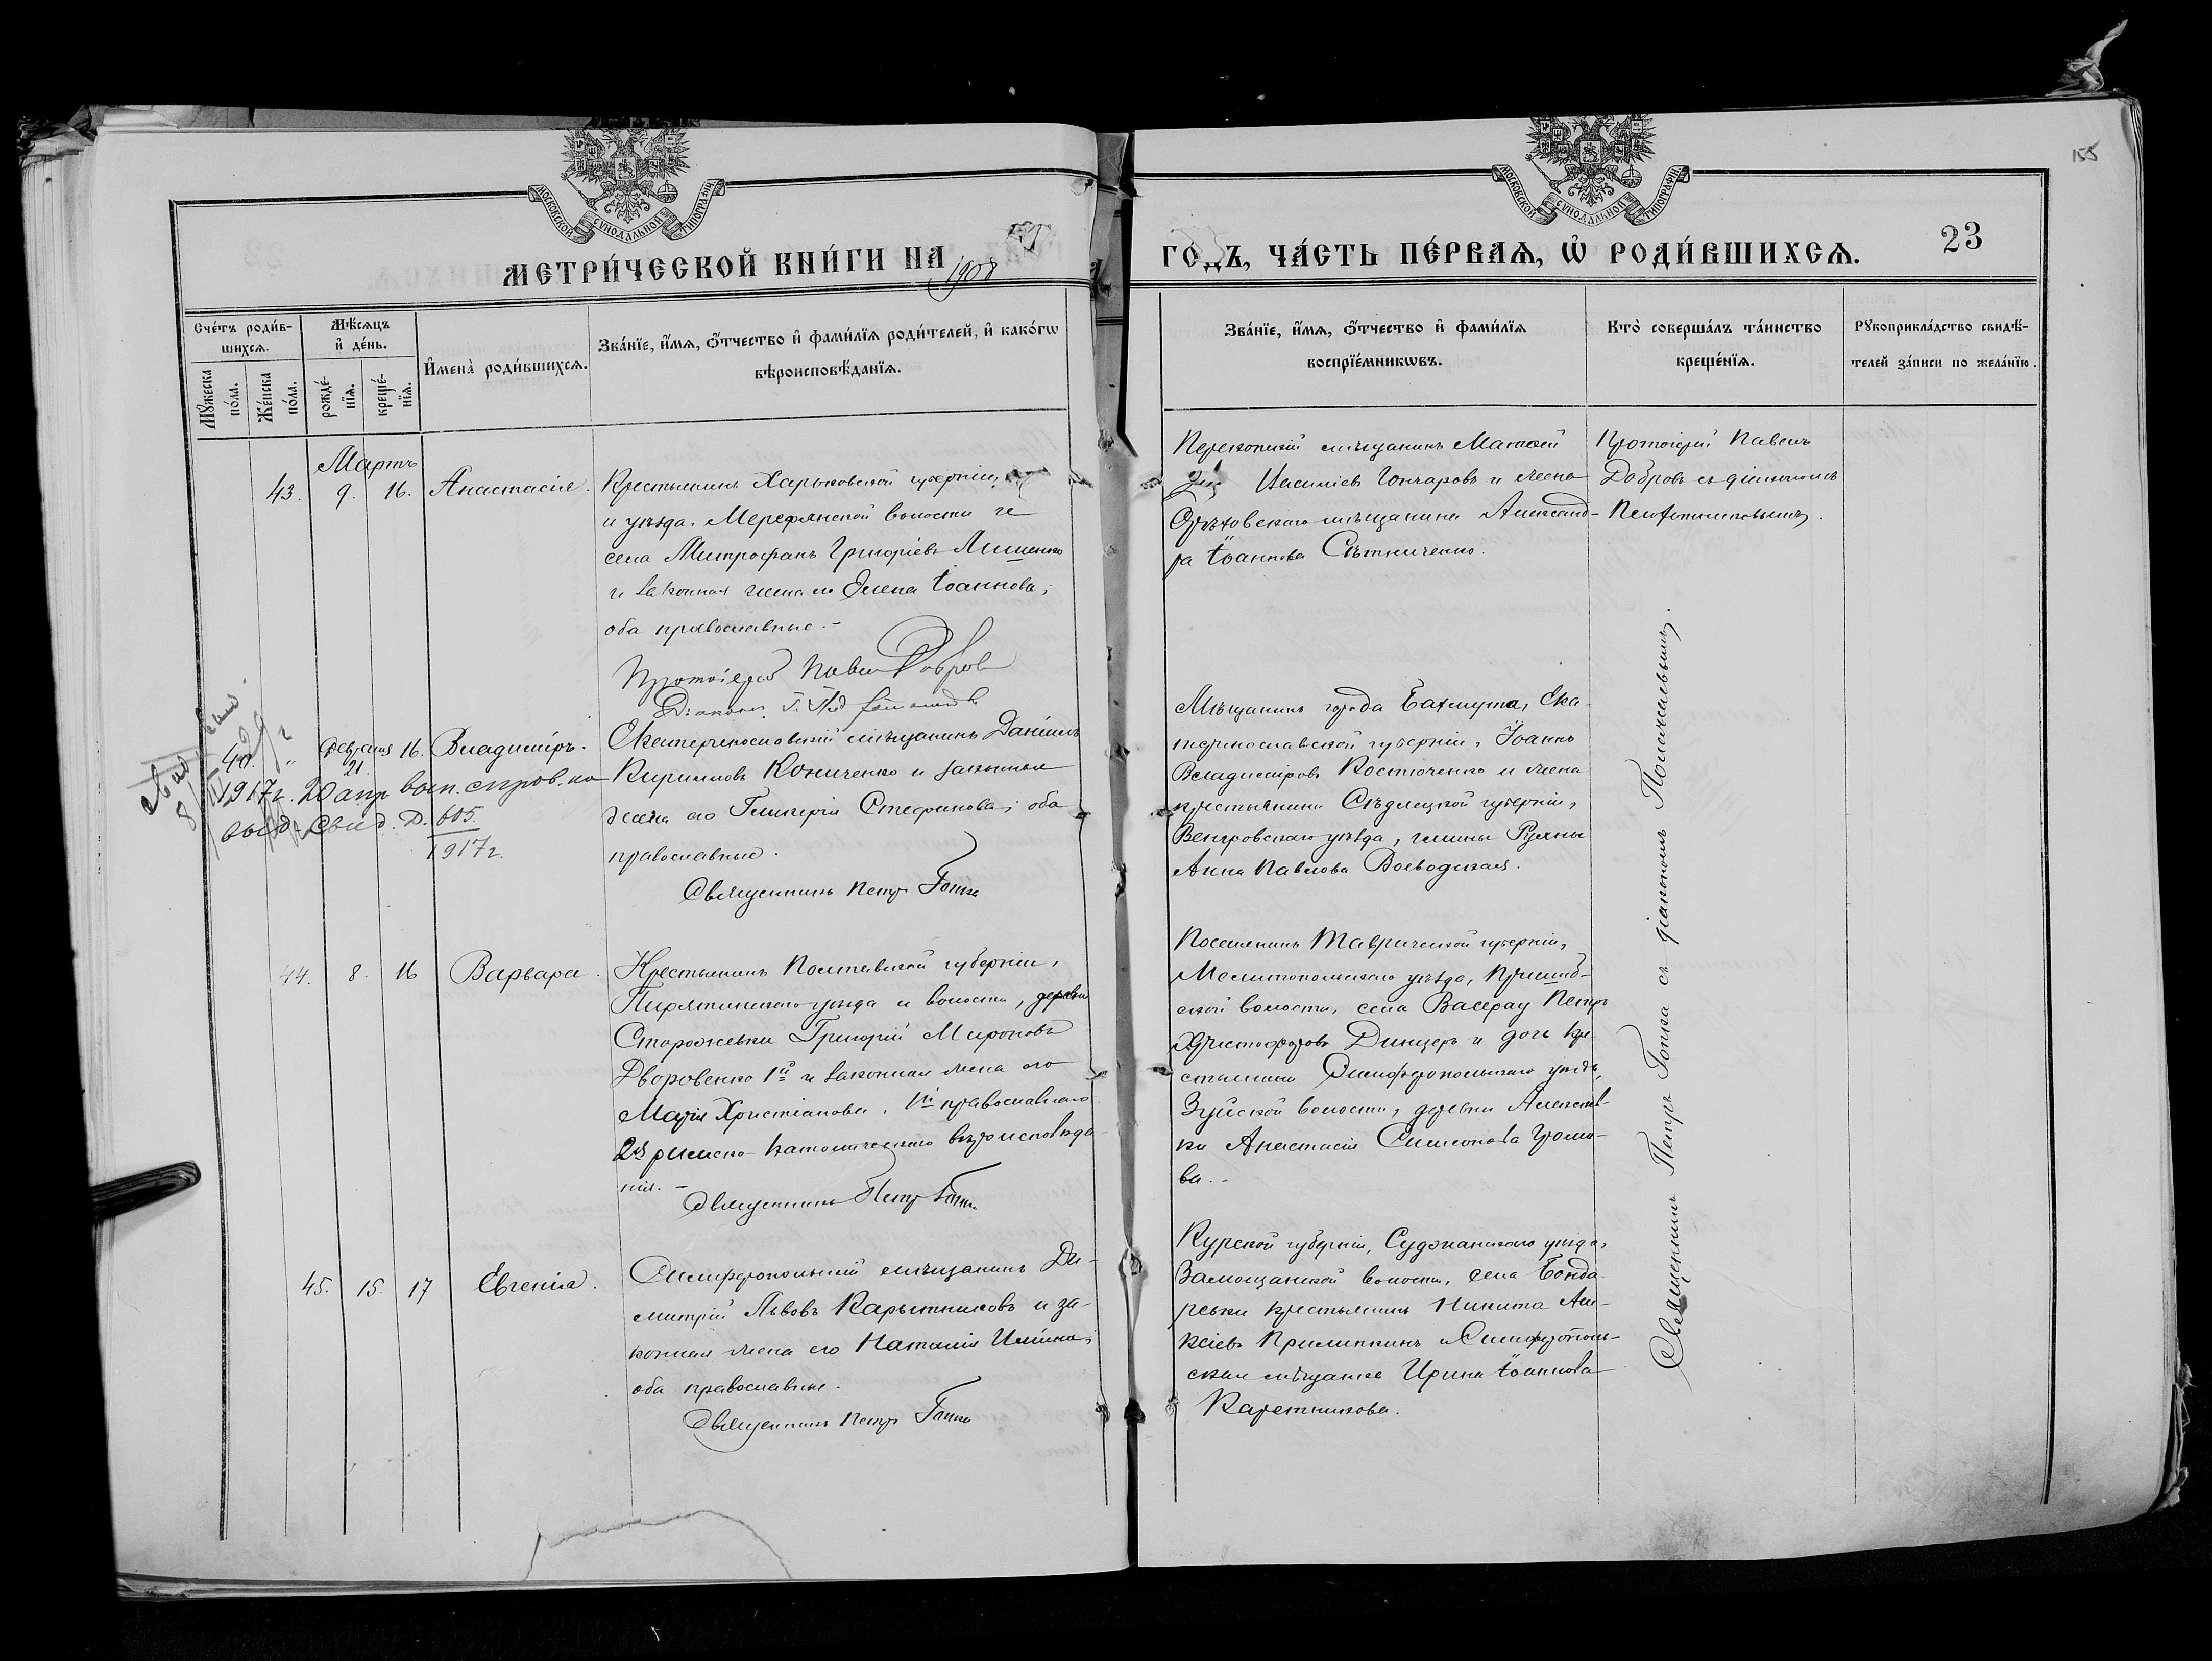 155
МОСКОВСКОЙ СУНОДАЛЬНОЙ ТИПОГРАФІИ
МОСКОВСКОЙ СУНОДАЛЬНОЙ ТИПОГРАФІИ
МЕТРИ́ЧЕСКОЙ КНИ́ГИ НА 1908
ГОДЪ, ЧА́СТЬ ПЕ́РВАѦ, Ѡ҆ РОДИ́ВШИХСѦ.
23
Сче́тъ роди́в-
шихсѧ.
Мꙋ́жеска по́ла.
Же́нска по́ла.
Мѣ́сѧцъ
и҆ де́нь.
рожде́-
нїѧ.
креще́-
нїѧ.
И҆мена̀ роди́вшихсѧ.
Зва́нїе, и҆́мѧ, ѻ҆́тчество и҆ фами́лїѧ роди́телей, и҆ како́гѡ
вѣроисповѣ́данїѧ.
Зва́нїе, и҆́мѧ, ѻ҆́тчество и҆ фами́лїѧ
воспрїе́мникѡвъ.
Кто̀ соверша́лъ та́инство
креще́нїѧ.
Рꙋкоприкла́дство свидѣ́-
телей за́писи по жела́нїю.
Мартъ
43. 9. 16. Анастасія.
Крестьянинъ Харьковской губерніи,
и уѣзда, Мерефянской волости
села Митрофанъ Григоріевъ
и законная жена его Елена Іоаннова;
оба православные.-
Протоіерей Павелъ Добров
Перекопскій мѣщанинъ Матѳей
Василіевъ Гончаровъ и жена
Орѣховскаго мѣщанина Александ-
ра Іоаннова Сѣтниченко.
Протоіерей Павелъ
Добровъ съ діакономъ
40. " Февраля 21. 16. Владиміръ.
1917г. 20 апр
выд. свид. Д. 605
1917г.
Екатеринославскій мѣщанинъ Даніилъ
Кирилловъ Кониченко и законная
жена его Гликерія Стефанова; оба
православные.
Священникъ Петръ Гопка
Мѣщанинъ города Бахмута, Ека-
теринославской губерніи, Іоаннъ
Владиміровъ Костюченко и жена
крестьянина Сѣдлецкой губерніи,
Венгровскаго уѣзда, гмины
Анна Павлова Воеводская.
44. 8. 16 Варвара.
Крестьянинъ Полтавской губерніи,
Пирятинскаго уѣзда и волости, деревни
Сторожевки Григорій Мироновъ
Дворовенко 1й и законная жена его
Марія Христіанова, 1й православнаго
2я римско-католическаго вѣроисповѣда-
нія.-
Священникъ Петръ Гопка
Поселянинъ Таврической губерніи,
Мелитопольскаго уѣзда, Пришиб-
ской волости, села Вассрау Петръ
Христофоровъ Динцеръ и дочь кре-
стьянина Симферопольскаго уѣзда,
Зуйской волости, деревни
Анастасія Симеонова Громо-
ва.-
45. 15. 17 Евгенія.
Симферопольскій мѣщанинъ Ди-
митрій Львовъ Карытниковъ и за-
конная жена его Наталія Ильина;
оба православные.
Священникъ Петръ Гопка
Курской губерніи, Суджанскаго уѣзда,
Замощанской волости, села Бонда-
ревки крестьянинъ Никита Але-
ксіевъ Прилипкинъ и Симферополь-
ская мѣщанка Ирина Іоаннова
Каретникова.
Священникъ Петръ Гопка съ діакономъ